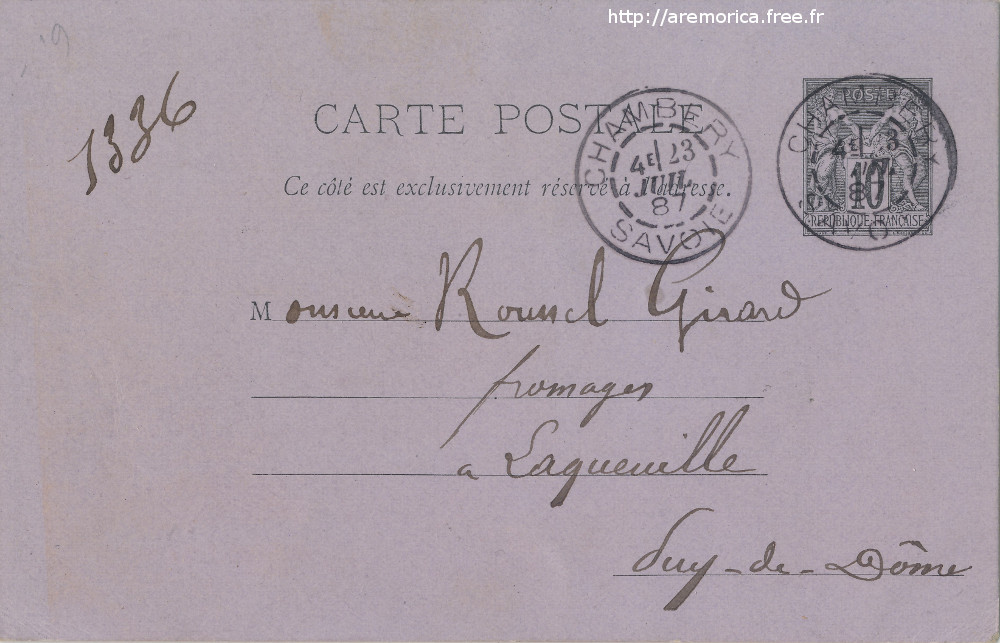 http://aremorica.free.fr
1336
CARTE POSTALE
Ce côté est exclusivement réservé à l'adresse.
CHAMBERY
4E 23
JUIL
87
SAVOIE
POSTE
10
REPUBLIQUE FRANÇAISE
Monsieur Roussel Girard
fromages
a Laqueuille
Puy-de-Dôme